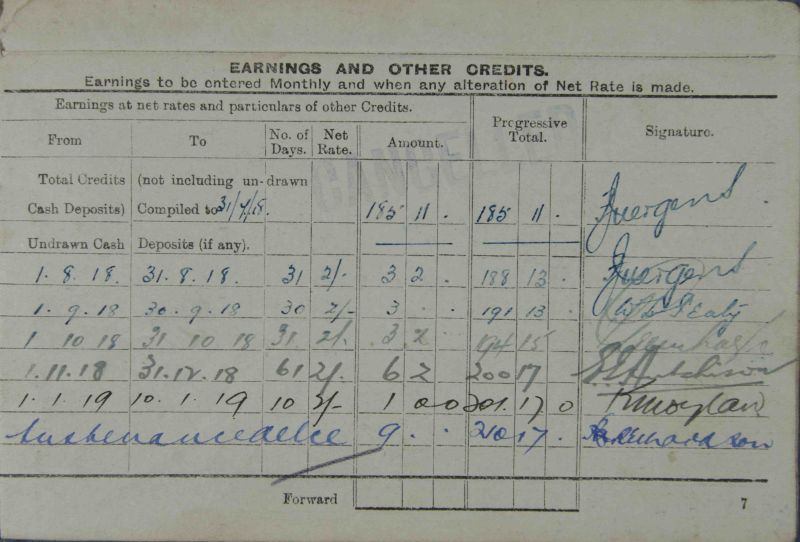 EARNINGS AND OTHER CREDITS.
Earnings to be entered Monthly and when any alteration of Net Rate is made.
Earnings at net rates and particulars of other Credits.
From To No. of Days. Net Rate. Amount. Progressive Total. Signature.
CANCELLED
Total Credits (not including undrawn
Cash Deposits) Compiled to 31/7/18. 185 11 . 185 11 . Juergens
Undrawn Cash Deposits (if any).
1. 8. 18. 31. 8. 18. 31 2/- 3 2 . 188 13 . Juergens
1. 9. 18 30. 9. 18 30 2/- 3 . . 191 13 .
1 10 18 31 10 18 31. 2/- 3 2 . 194 15
1. 11. 18 31. 12. 18 61 2/- 6 2 200 17
1. 1. 19 10. 1. 19 10 2/- 1 0 0 201. 17 0
Sustenance 9 . . 210 17 . Richardson
Forward
7